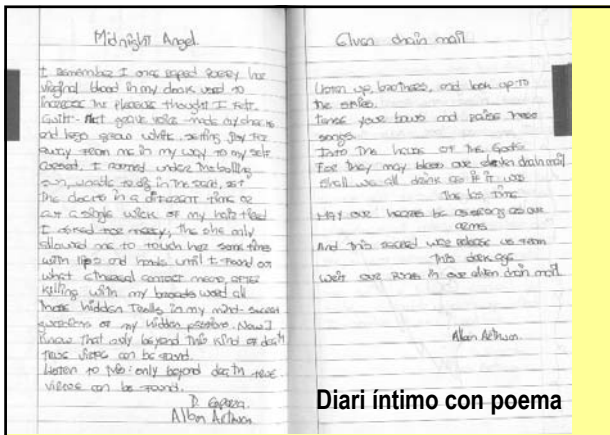 Midnight Angel
I remember I once raped her
virginal blood in my dark used to
increase the pleasure thought I felt
Guilt - that grave voice - made my
and legs grow white, setting Joy far
away from me in my way to my self
I roamed under the boiling
sun, in the sand, set
the in a different time or
a single wick of my hatred
I asked for mercy, she only
allowed me to touch her sometimes
with lips and hands until I found out
what ethereal contact means, after
killing with my sword all
those hidden in my mind - sweet
guardians of my hidden passions. Now I
know that only beyond this kind of death
true virtue can be found.
Listen to : only beyond death true
virtue can be found.
D.
Alban Arthuan
Elven chain mail
Listen up, brothers, and look up to
the skies.
your bows and raise these
songs.
Into the of the Gods
For they may bless our elven chain mail
Shall we all drink as if it was
the last time
May our hearts be as strong as our
arms
And this sacred release us from
this dark age
our in our elven chain mail
Alban Arthuan
Diari íntimo con poema